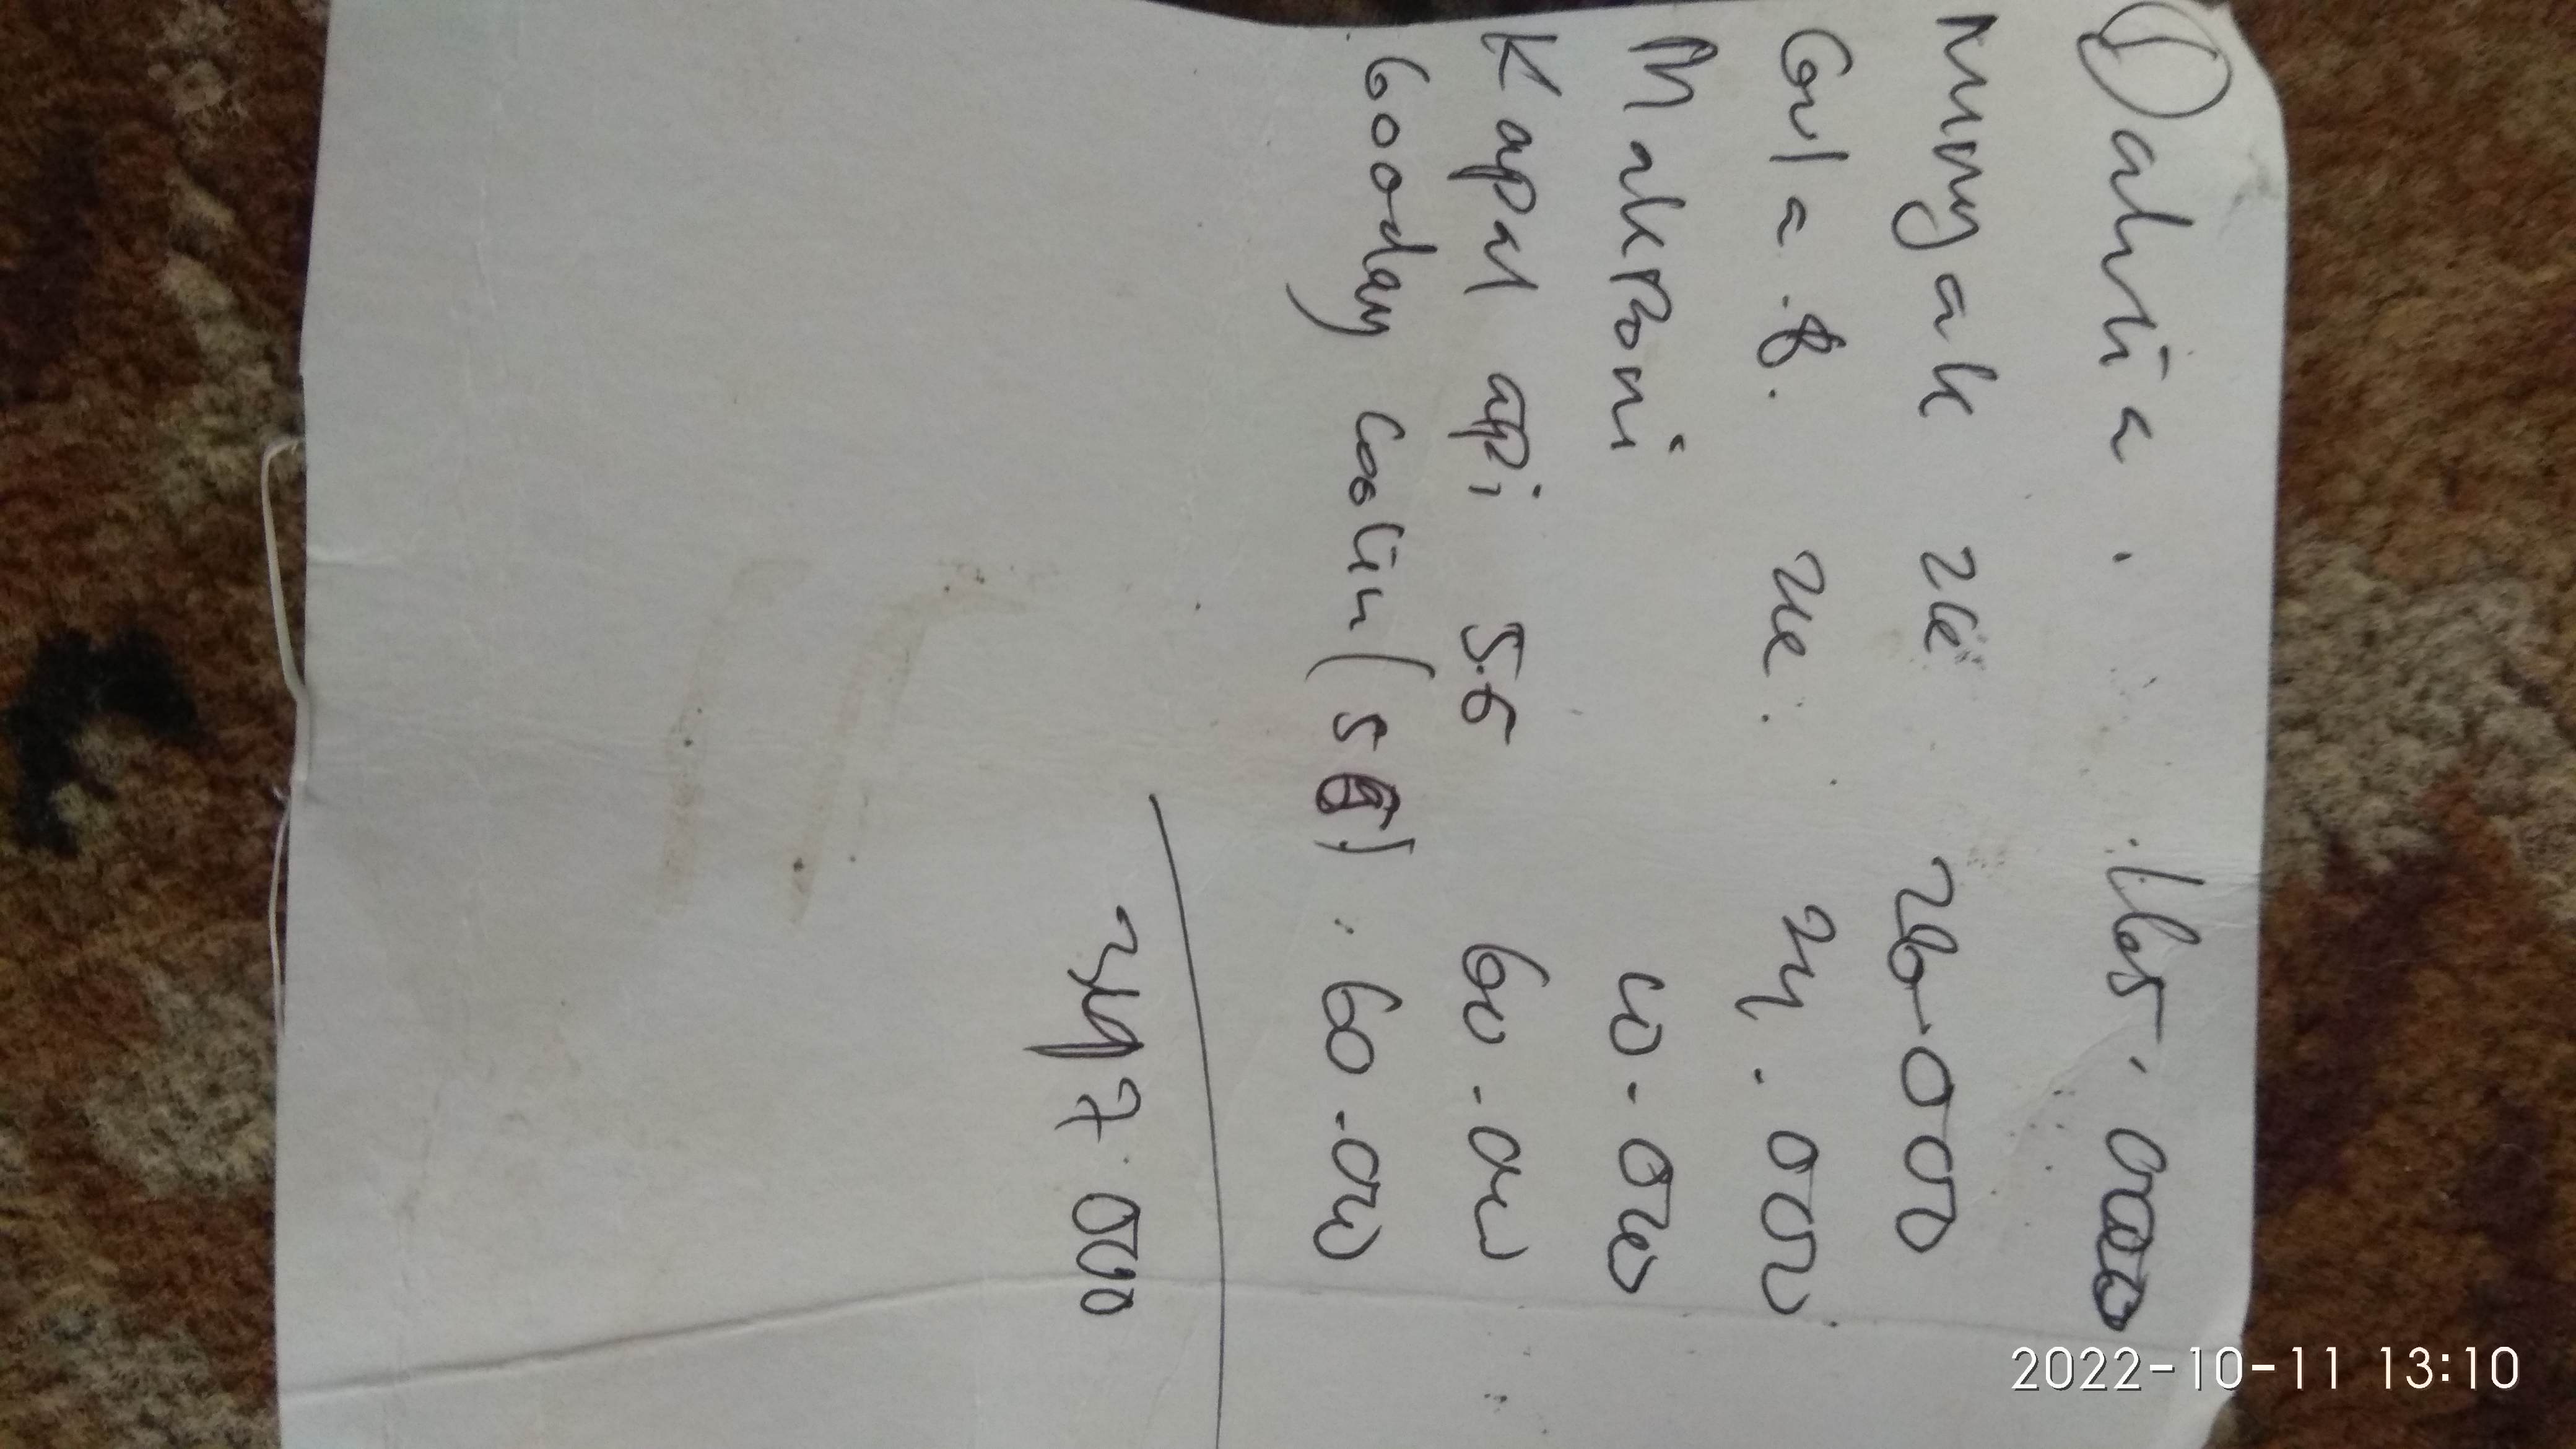 Dahlia. 165.000
Minyak 2L 26-000
Gula 8. 24.000
Makroni 10-000
Kapal api 56 60-000
Gooday Coolin (5 6) 60-000
000
2022-10-11 13:10